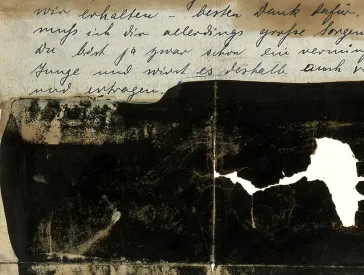 wir erhalten – besten Dank dafür.
muß ich dir allerdings große Sorgen
Du bist ja zwar schon ein vernün
Junge und wirst es deshalb auch
und ertragen.